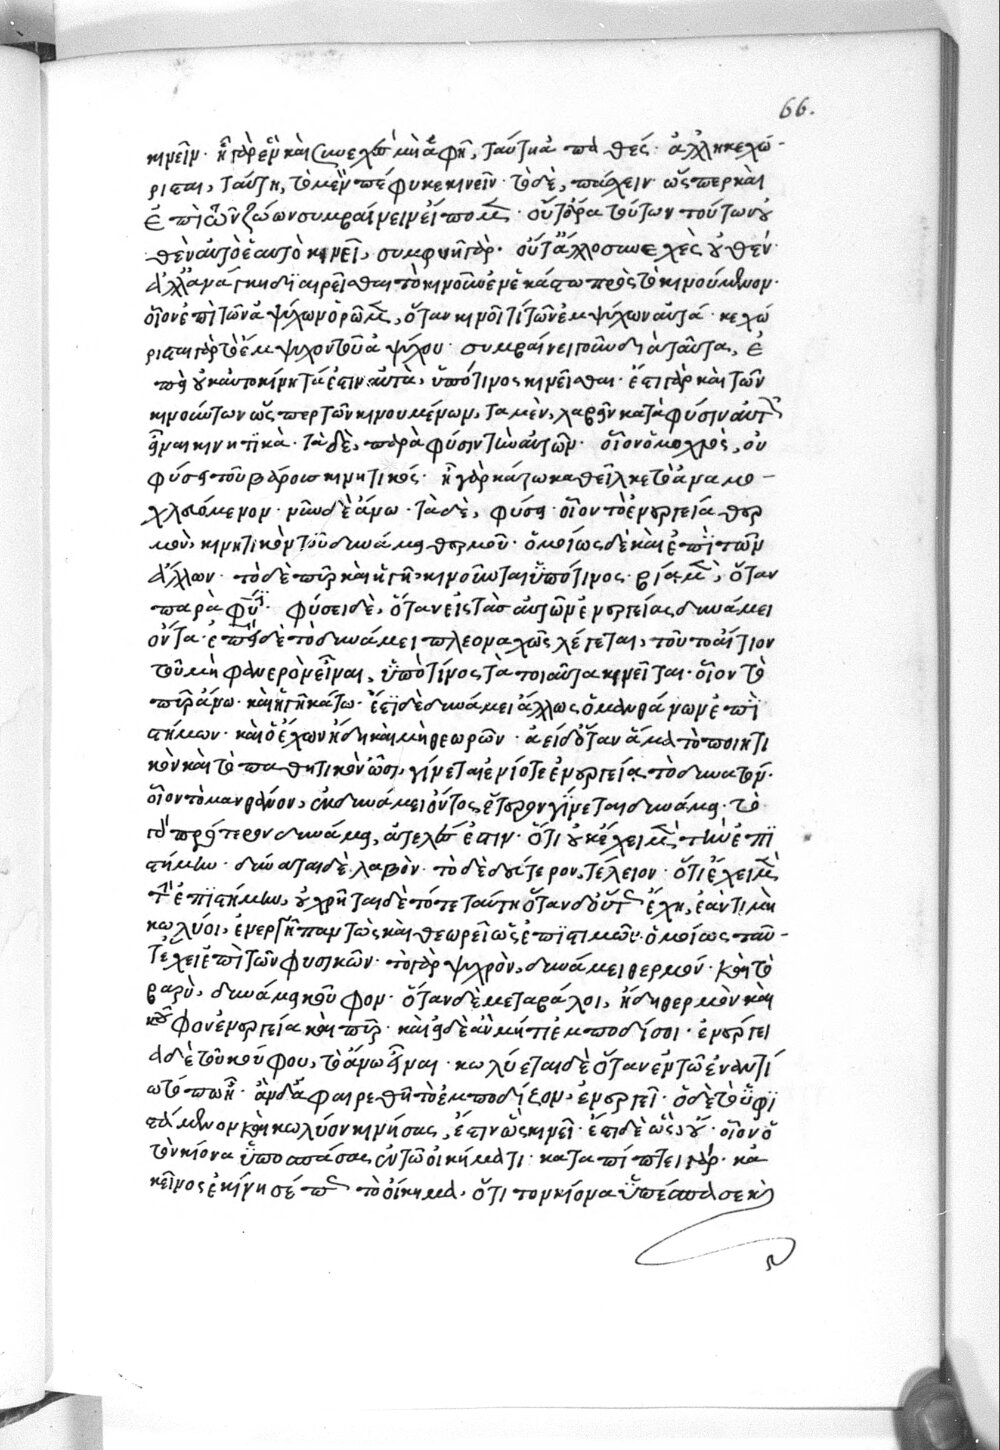 66.
κινεῖν· ἧ γὰρ ἓν καὶ συνεχὲς μὴ ἁφῆ, ταύτη ἀπαθές· ἀλλ' ἧ κεχώ-
ρισται, ταύτη, τὸ μὲν πέφυκε κινεῖν· τὸ δὲ, πάσχειν· ὥσπερ καὶ
ἐπὶ τῶν ζώων συμβαίνειν εἴπομεν· οὔτ' ἄρα τούτων τούτων οὐ
θὲν αὐτὸ ἑαυτὸ κινεῖ, συμφυῆ γάρ· οὔτ' ἄλλο συνεχὲς οὐθέν·
ἀλλ' ἀνάγκη διαιρεῖσθαι τὸ κινοῦν ἐν ἑκάστω πρὸς τὸ κινούμενον·
οἷον ἐπὶ τῶν ἀψύχων ὁρῶμεν, ὅταν κινῆ τι τῶν ἐμψύχων αὐτά· κεχώ
ρισται γὰρ τὸ ἔμψυχον τοῦ ἀψύχου· συμβαίνει γοῦν διὰ ταῦτα, ἐ
πεὶ οὐκ αὐτοκίνητά ἐστιν αὐτὰ, ὑπό τινος κινεῖσθαι· ἔστι γὰρ καὶ τῶν
κινούντων ὥσπερ τῶν κινουμένων, τὰ μὲν, λαβεῖν κατὰ φύσιν αὐτῶν
εἶναι κινητικά· τὰ δὲ, παρὰ φύσιν τὴν αὐτῶν· οἷον ὁ μοχλὸς, οὐ
φύσει τοῦ βάρους κινητικός· ἡ γὰρ κάτω καθεῖλκε τὸ ἀναμο-
χλευόμενον· νῦν δὲ ἄνω· τὰ δὲ, φύσει· οἷον τὸ ἐνεργεία θερ
μὸν, κινητικὸν τοῦ δυνάμει θερμοῦ· ὁμοίως δὲ καὶ ἐπὶ τῶν
ἄλλων· τὸ δὲ πῦρ καὶ ἡ γῆ, κινοῦνται ὑπό τινος· βία μὲν, ὅταν
παρὰ φύσιν· φύσει δὲ, ὅταν εἰς τὰς αὐτῶν ἐνεργείας δυνάμει
ὄντα· ἐπεὶ δὲ τὸ δυνάμει πλεοναχῶς λέγεται, τοῦτο αἴτιον
τοῦ μὴ φανερὸν εἶναι, ὑπό τίνος τὰ τοιαῦτα κινεῖται· οἷον τὸ
πῦρ ἄνω· καὶ ἡ γῆ κάτω· ἔστι δὲ δυνάμει ἄλλως ὁ μανθάνων ἐπι
στήμων· καὶ ὁ ἔχων ἤδη καὶ μὴ θεωρῶν· ἀεὶ δ' ὅταν ἅμα τὸ ποιητι
κὸν καὶ τὸ παθητικὸν ὦσι, γίνεται ἐνίοτε ἐνεργεία τὸ δυνατόν·
οἷον τὸ μανθάνον, ἐκ δυνάμει ὄντος, ἕτερον γίνεται δυνάμει· τὸ
γὰρ πρότερον δυνάμει, ἀτελές ἐστιν· ὅτι οὐκ ἔχει μὲν τὴν ἐπι
στήμην· δύναται δὲ λαβεῖν· τὸ δὲ δεύτερον, τέλειον· ὅτι ἔχει μὲν
τὴν ἐπιστήμην, οὐ χρῆται δὲ τότε ταύτη· ὅταν δ' οὕτως ἔχη, ἐάν τι μὴ
κωλύοι, ἐνεργῆ παντῶς καὶ θεωρεῖ ὡς ἐπιστήμων· ὁμοίως ταῦ-
τ' ἔχει ἐπὶ τῶν φυσικῶν· τὸ γὰρ ψυχρὸν, δυνάμει θερμόν· καὶ τὸ
βαρὺ, δυνάμει κοῦφον· ὅταν δὲ μεταβάλοι, ἤδη θερμὸν καὶ
κοῦφον ἐνεργεία καὶ πῦρ· καὶ εἰ δὲ ἂν μή τι ἐμποδίσοι· ἐνέργει
α δὲ τοῦ κούφου, τὸ ἄνω εἶναι· κωλύεται δὲ ὅταν ἐν τῶ ἐναντί
ω τόπω ἦ· ἂν δ' ἀφαιρεθῆ τὸ ἐμποδίζον, ἐνεργεῖ· ὁ δὲ τὸ ὑφι
στάμενον καὶ κωλύον κινήσας, ἔστιν ὡς κινεῖ· ἔστι δὲ ὡς, οὔ· οἷον ὁ
τὸν κίονα ὑποσπάσας ἐν τῶ οἰκήματι· καταπίπτει γάρ· κἀ
κεῖνος ἐκίνησέ πως τὸ οἴκημα, ὅτι τὸν κίονα ὑπέσπασε καὶ